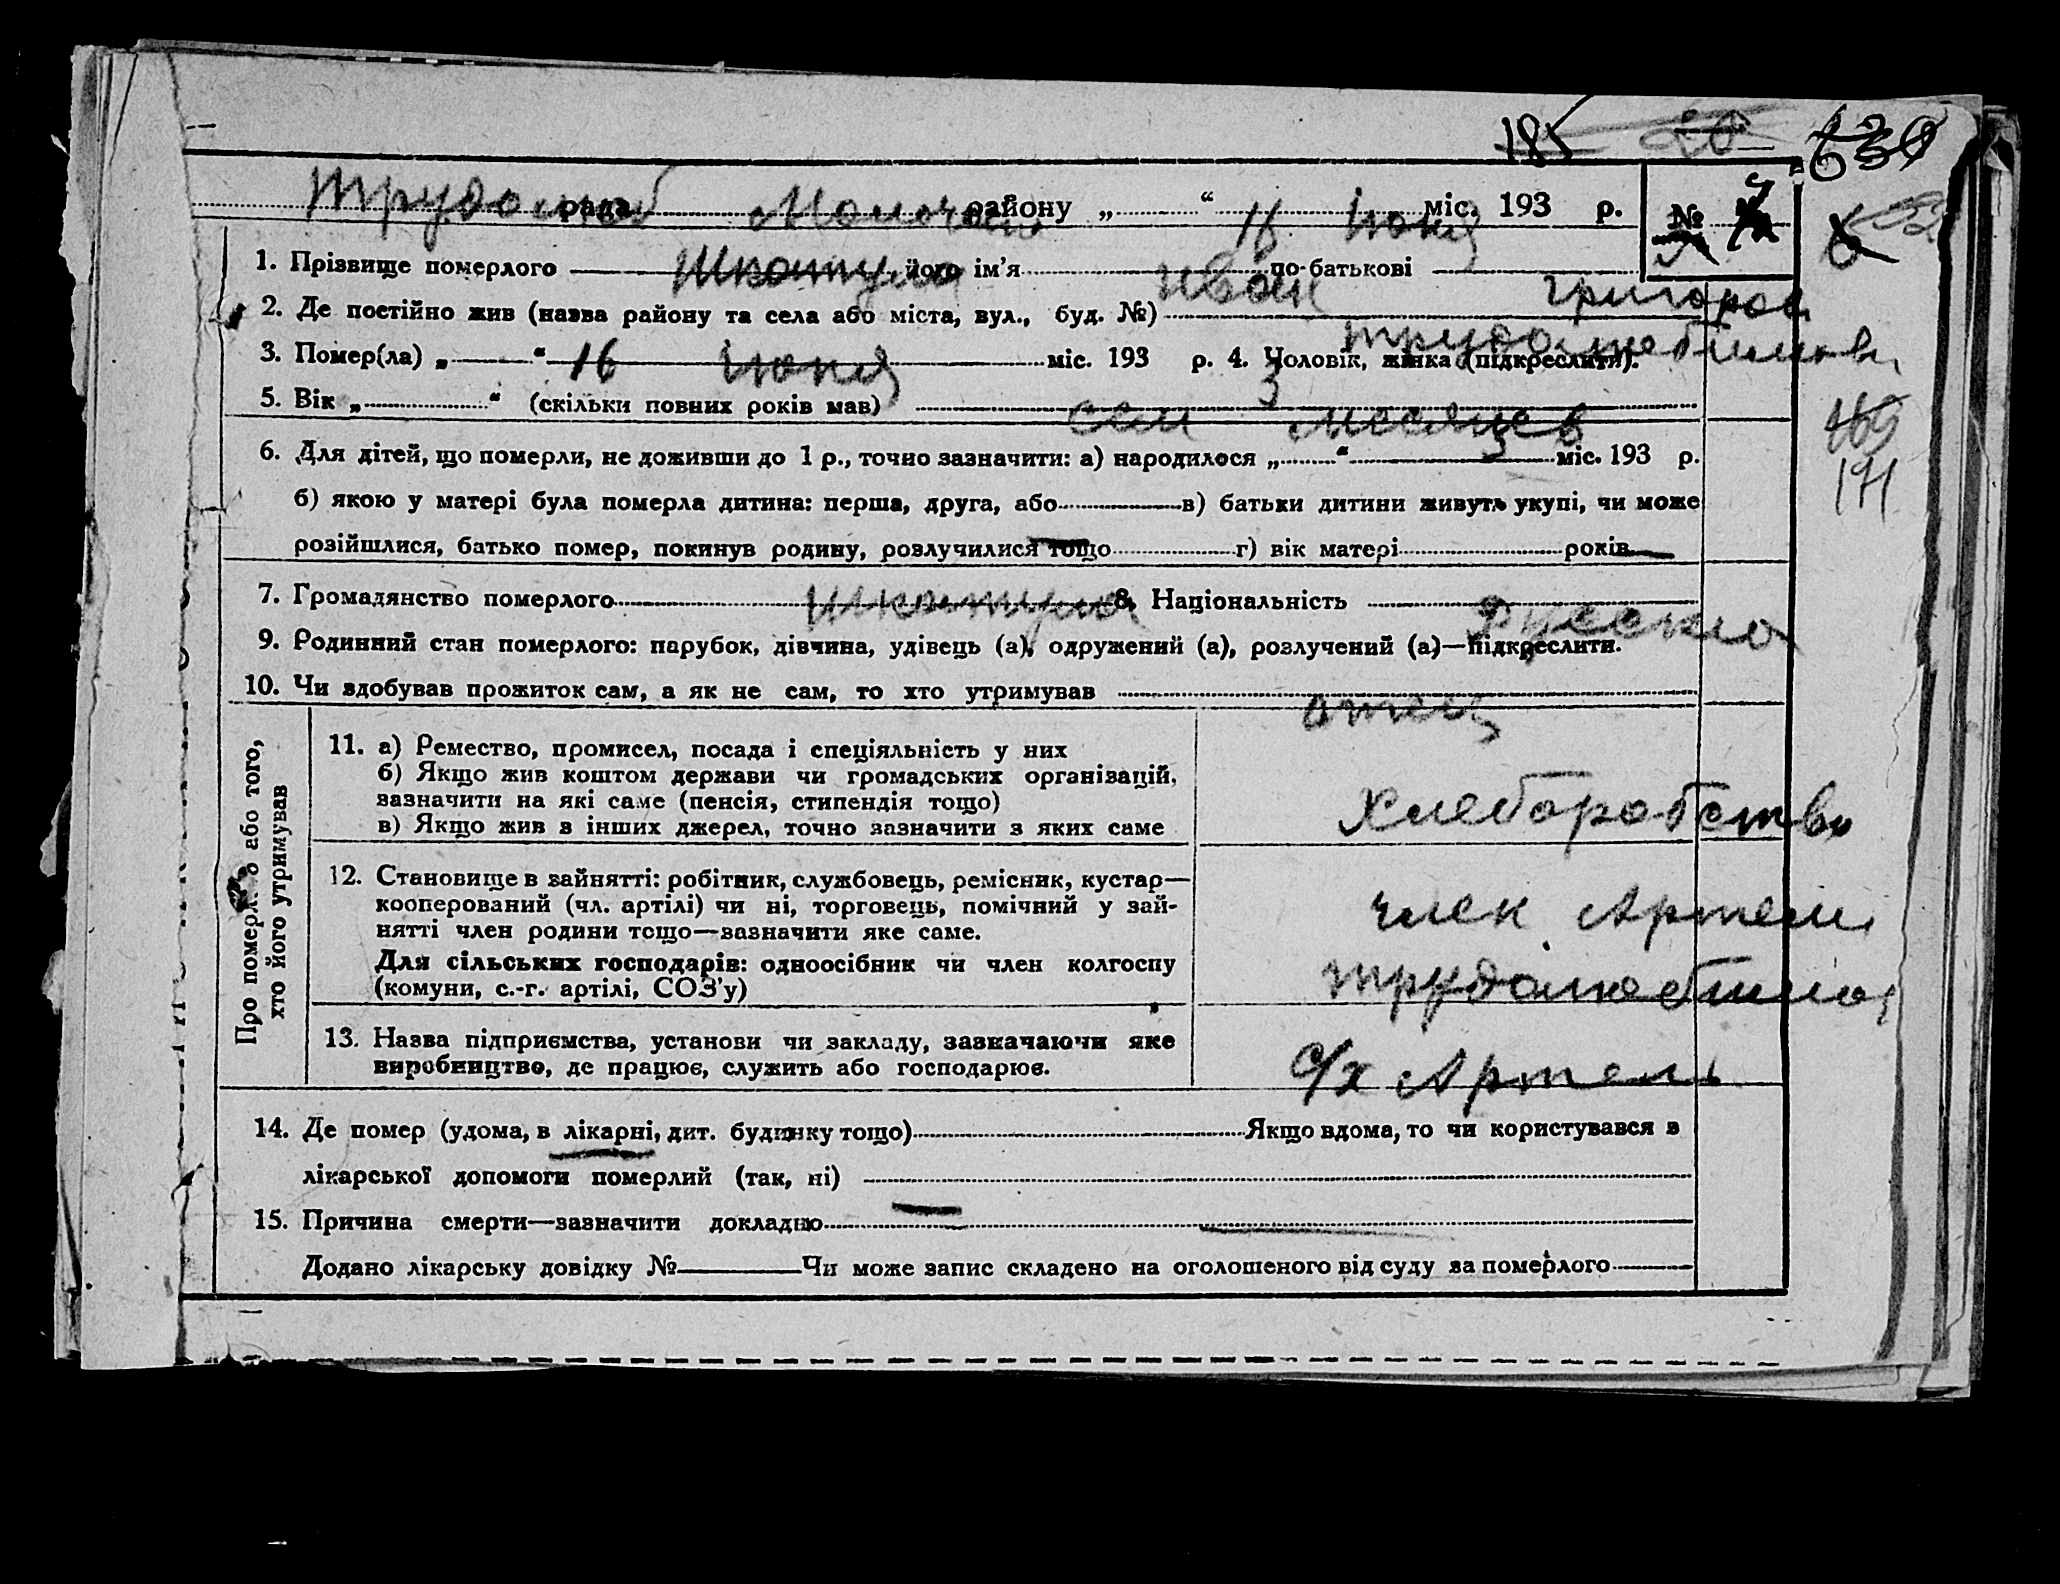 185 20 630
Трудолюб рада Молочан району „ “ 16 Июня міс. 193 р. №
1. Прізвище померлого Шкатула його ім’я Иван по-батькові Григоров
2. Де постійно жив (назва району та села або міста, вул., буд. №) Трудолюбимовк
3. Помер(ла) „ “ 16 Июня міс. 193 3 р. 4. Чоловік, жінка (підкреслити).
5. Вік „ “ (скільки повних років мав) сем месяцев
169
6. Для дітей, що померли, не доживши до 1 р., точно зазначити: а) народилося „ “ міс. 193 р.
171
б) якою у матері була померла дитина: перша, друга, або в) батьки дитини живуть укупі, чи може
розійшлися, батько помер, покинув родину, розлучилися тощо г) вік матері років
7. Громадянство померлого Шкатула 8. Національність Русская
9. Родинний стан померлого: парубок, дівчина, удівець (а), одружений (а), розлучений (а)—підкреслити.
10. Чи здобував прожиток сам, а як не сам, то хто утримував отец
Про померлого або того,
хто його утримував
11. а) Ремество, промисел, посада і спеціяльність у них
б) Якщо жив коштом держави чи громадських організацій,
зазначити на які саме (пенсія, стипендія тощо)
в) Якщо жив з інших джерел, точно зазначити з яких саме
Хлеборобство
12. Становище в зайнятті: робітник, службовець, ремісник, кустар—
кооперований (чл. артілі) чи ні, торговець, помічний у зай-
нятті член родини тощо—зазначити яке саме.
Для сільських господарів: одноосібник чи член колгоспу
(комуни, с.-г. артілі, СОЗ’у)
член Артели
13. Назва підприємства, установи чи закладу, зазначаючи яке
виробництво, де працює, служить або господарює.
с/х Артель
14. Де помер (удома, в лікарні, дит. будинку тощо) Якщо вдома, то чи користувався з
лікарської допомоги померлий (так, ні)
15. Причина смерти—зазначити докладно
Додано лікарську довідку № Чи може запис складено на оголошеного від суду за померлого